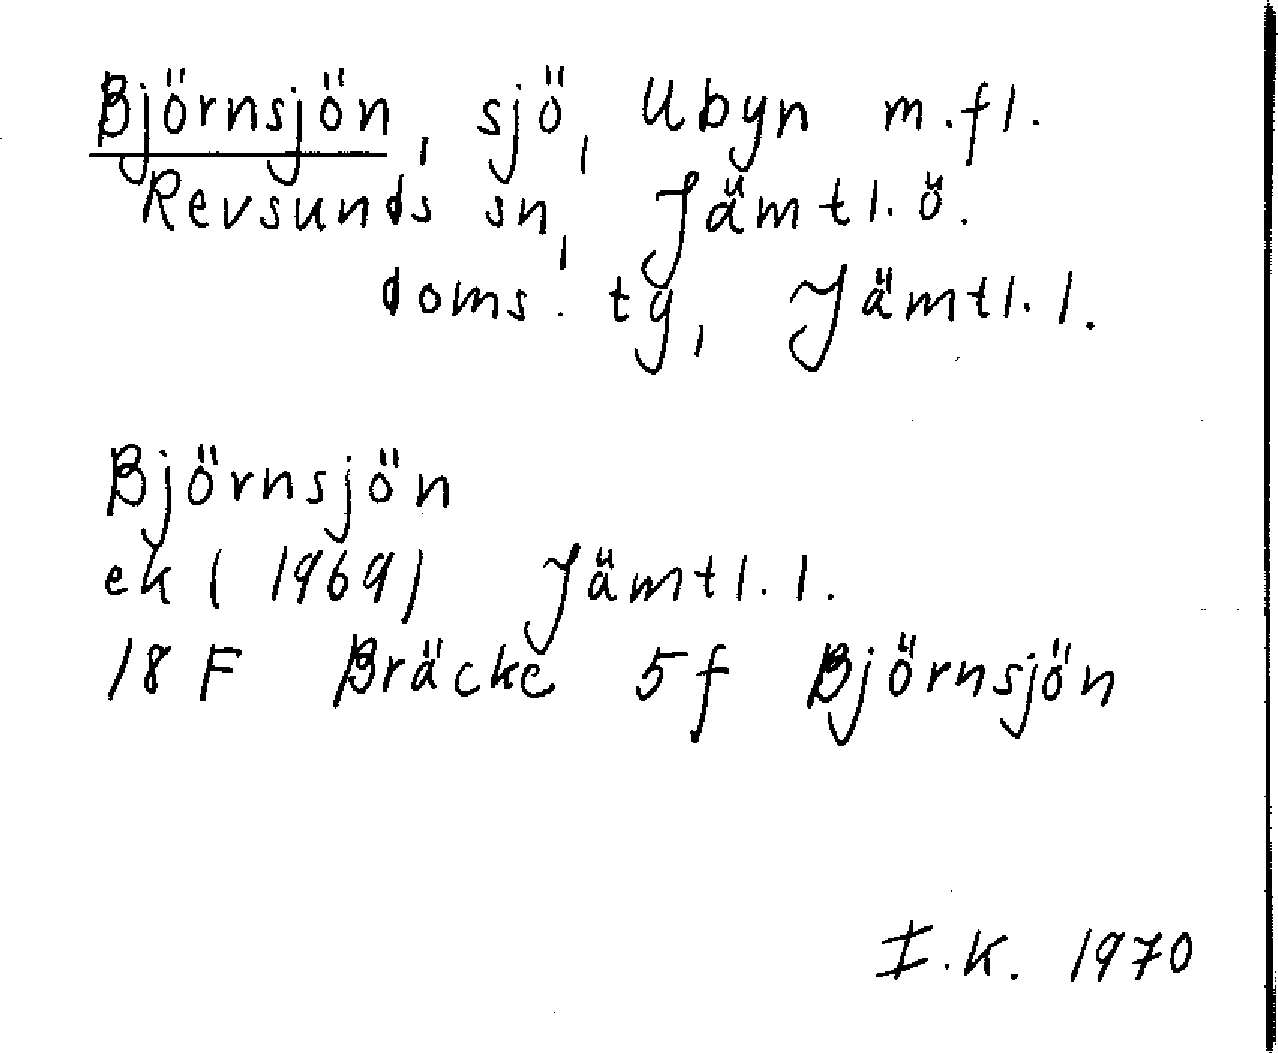 Björnsjön, sjö, Ubyn m.fl.
Revsunds sn, Jämtl. ö.
doms. tg, Jämtl. l.
Björnsjön
ek (1969) Jämtl. l.
18 F Bräcke 5f Björnsjön
I.K. 1970